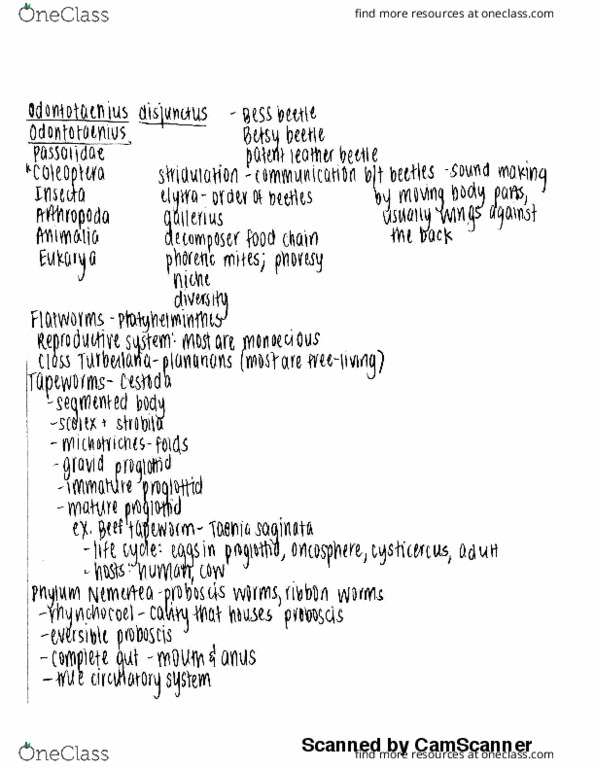 OneClass
find more resources at oneclass.com
Odontotaenius disjunctus - Bess beetle
Odontotaenius Betsy beetle
Passalidae patent leather beetle
*Coleoptera stridulation - communication b/t beetles - sound making
Insecta elytra - order of beetles by moving body parts,
Arthropoda galleries usually wings against
Animalia decomposer food chain the back
Eukarya phoretic mites; phoresy
niche
diversity
Flatworms - Platyhelminthes
Reproductive system: most are monoecious
Class Turbellaria - planarians (most are free-living)
Tapeworms - Cestoda
- segmented body
- scolex + strobila
- microtriches - folds
- gravid proglottid
- immature proglottid
- mature proglottid
ex. Beef tapeworm - Taenia saginata
- life cycle: eggs in proglottid, oncosphere, cysticercus, adult
- hosts: human, cow
Phylum Nemertea - proboscis worms, ribbon worms
- rhynchocoel - cavity that houses proboscis
- eversible proboscis
- complete gut - mouth & anus
- true circulatory system
Scanned by CamScanner
OneClass
find more resources at oneclass.com